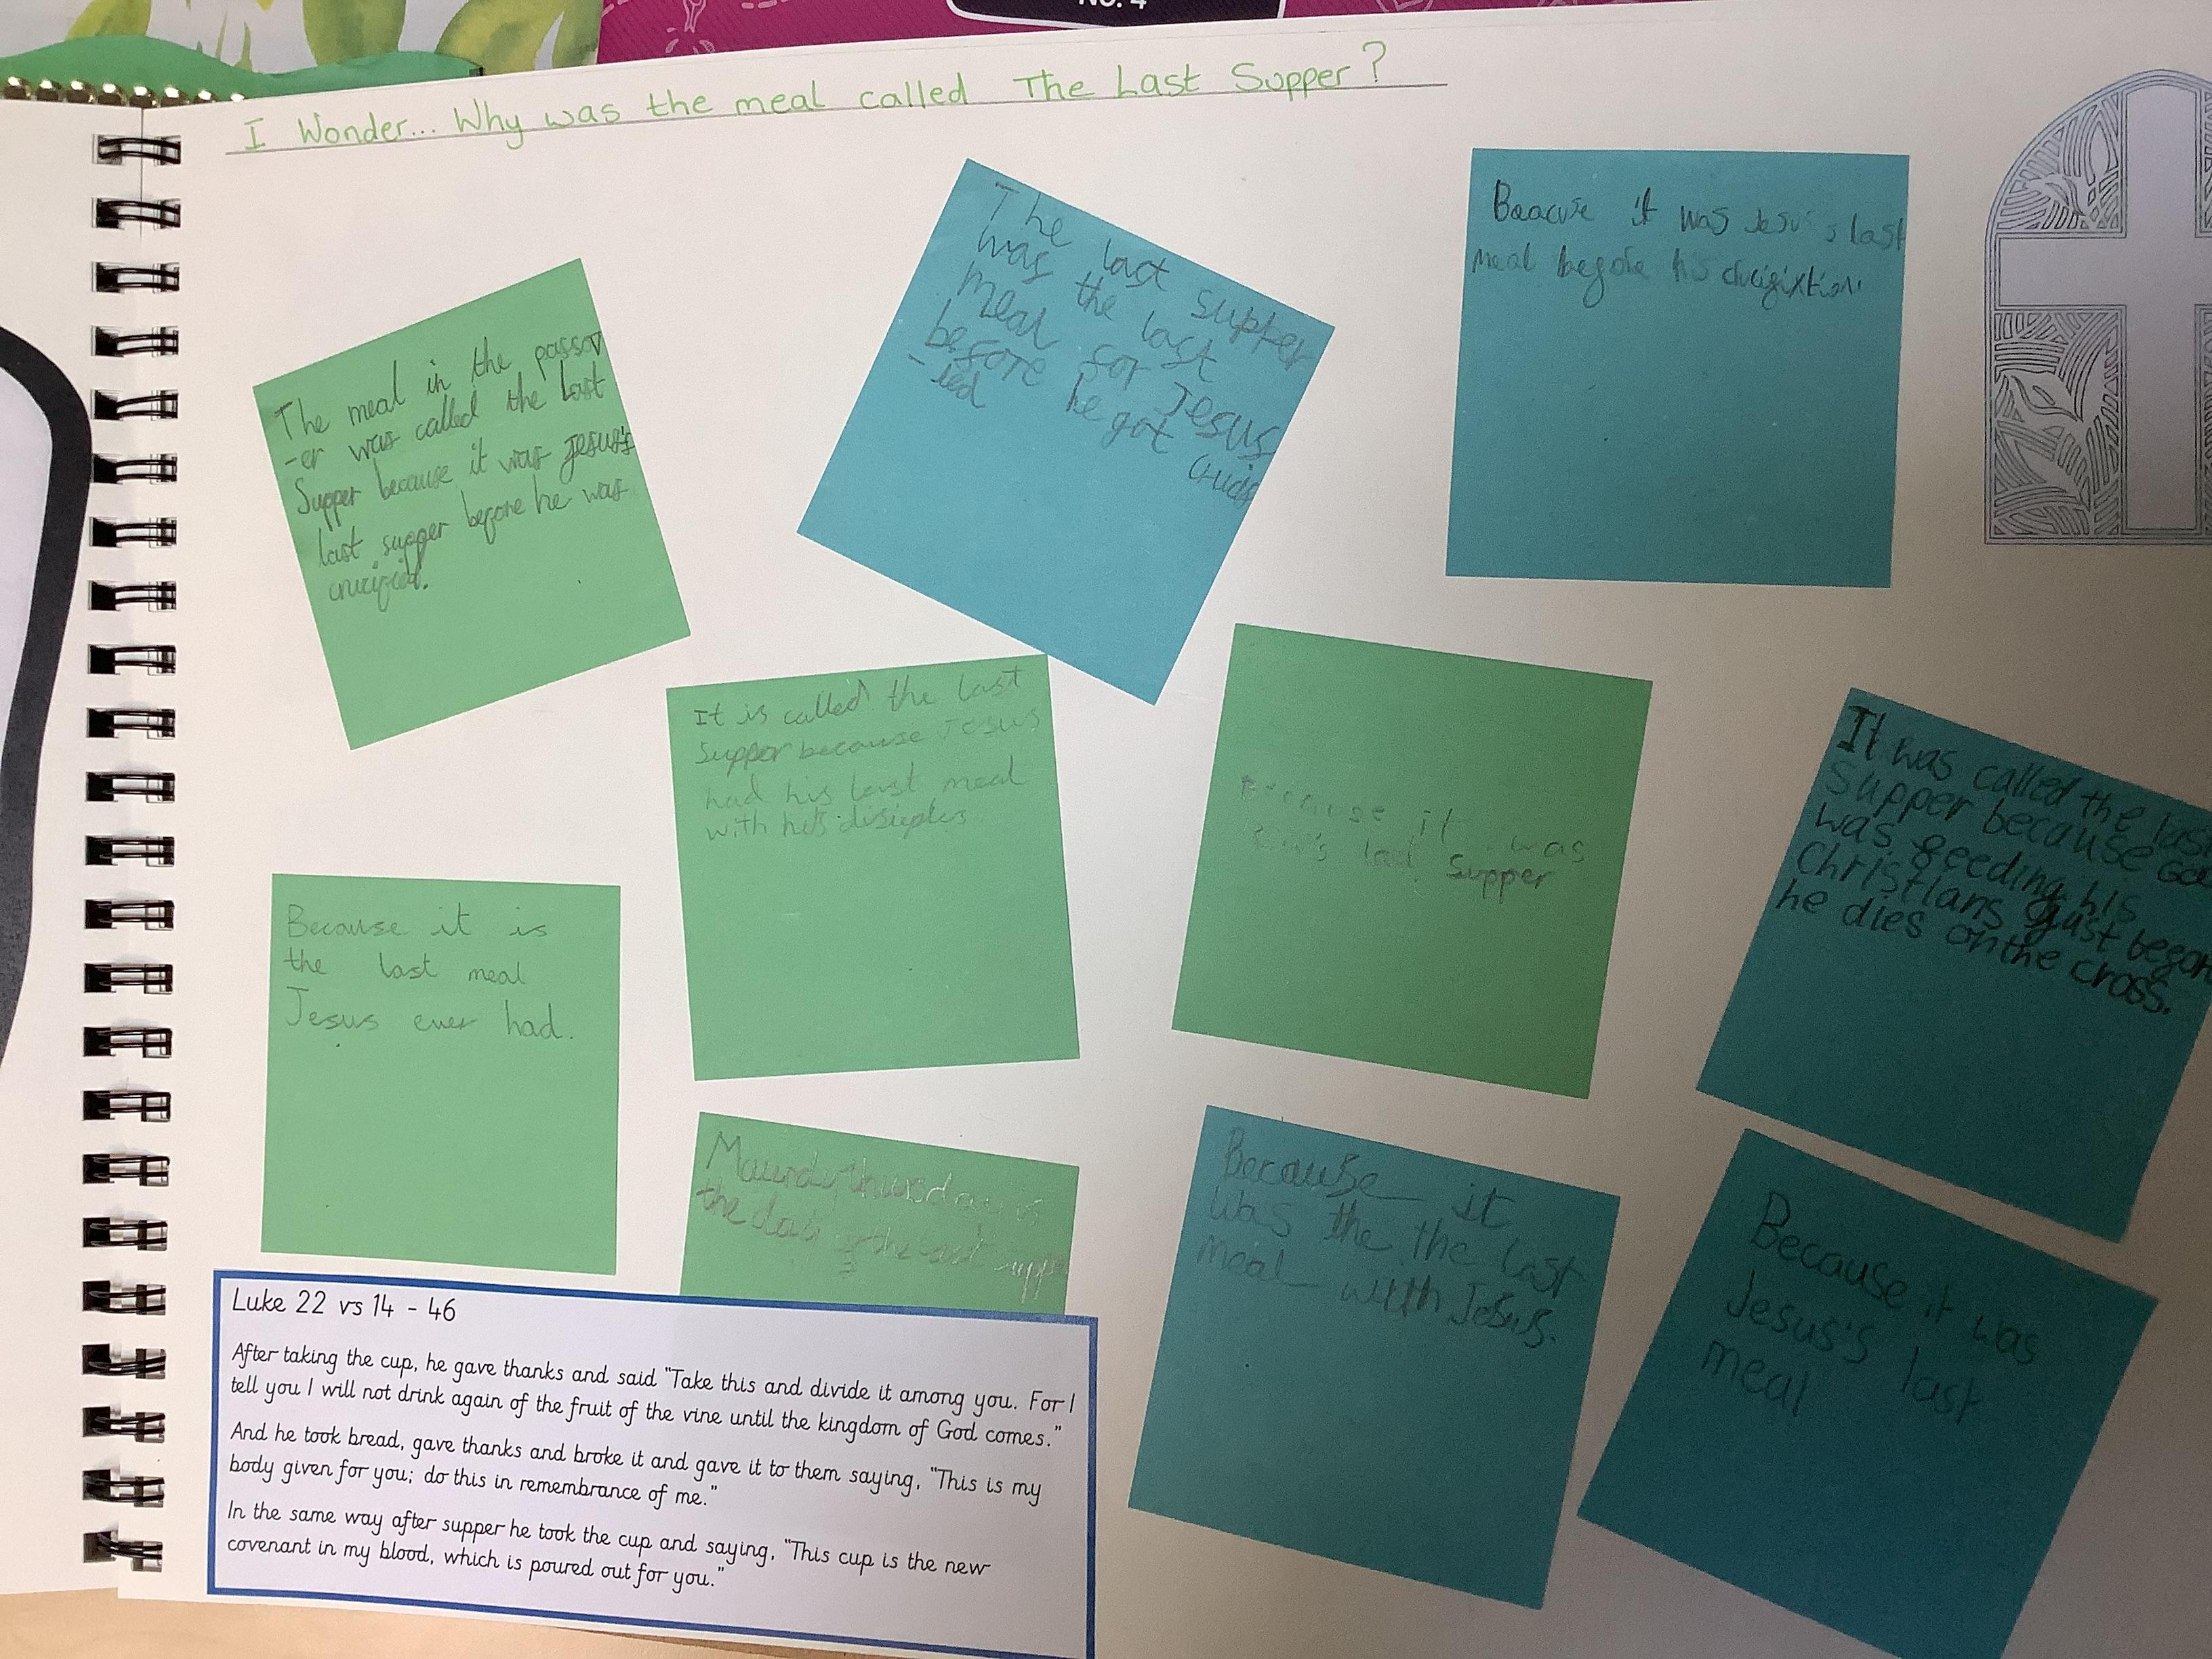 No. 4
I Wonder... Why was the meal called The Last Supper?
The meal in the passov
-er was called the last
Supper because it was Jesus's
last supper before he was
crucified.
The last supper
was the last
meal for Jesus
before he got crucif
-ied
Beacuse it was Jesu's last
meal before his crucifixtion.
It is called the last
Supper because Jesus
had his last meal
with his disiples
Because it was
last Supper
It was called the last
Supper because God
was feeding his
Christians just before
he dies on the cross.
Because it is
the last meal
Jesus ever had.
thursday is
the day of the last supp
Because it
was the the last
meal with Jesus.
Because it was
Jesus's last
meal
Luke 22 vs 14 - 46
After taking the cup, he gave thanks and said "Take this and divide it among you. For I
tell you I will not drink again of the fruit of the vine until the kingdom of God comes."
And he took bread, gave thanks and broke it and gave it to them saying, "This is my
body given for you; do this in remembrance of me."
In the same way after supper he took the cup and saying, "This cup is the new
covenant in my blood, which is poured out for you."